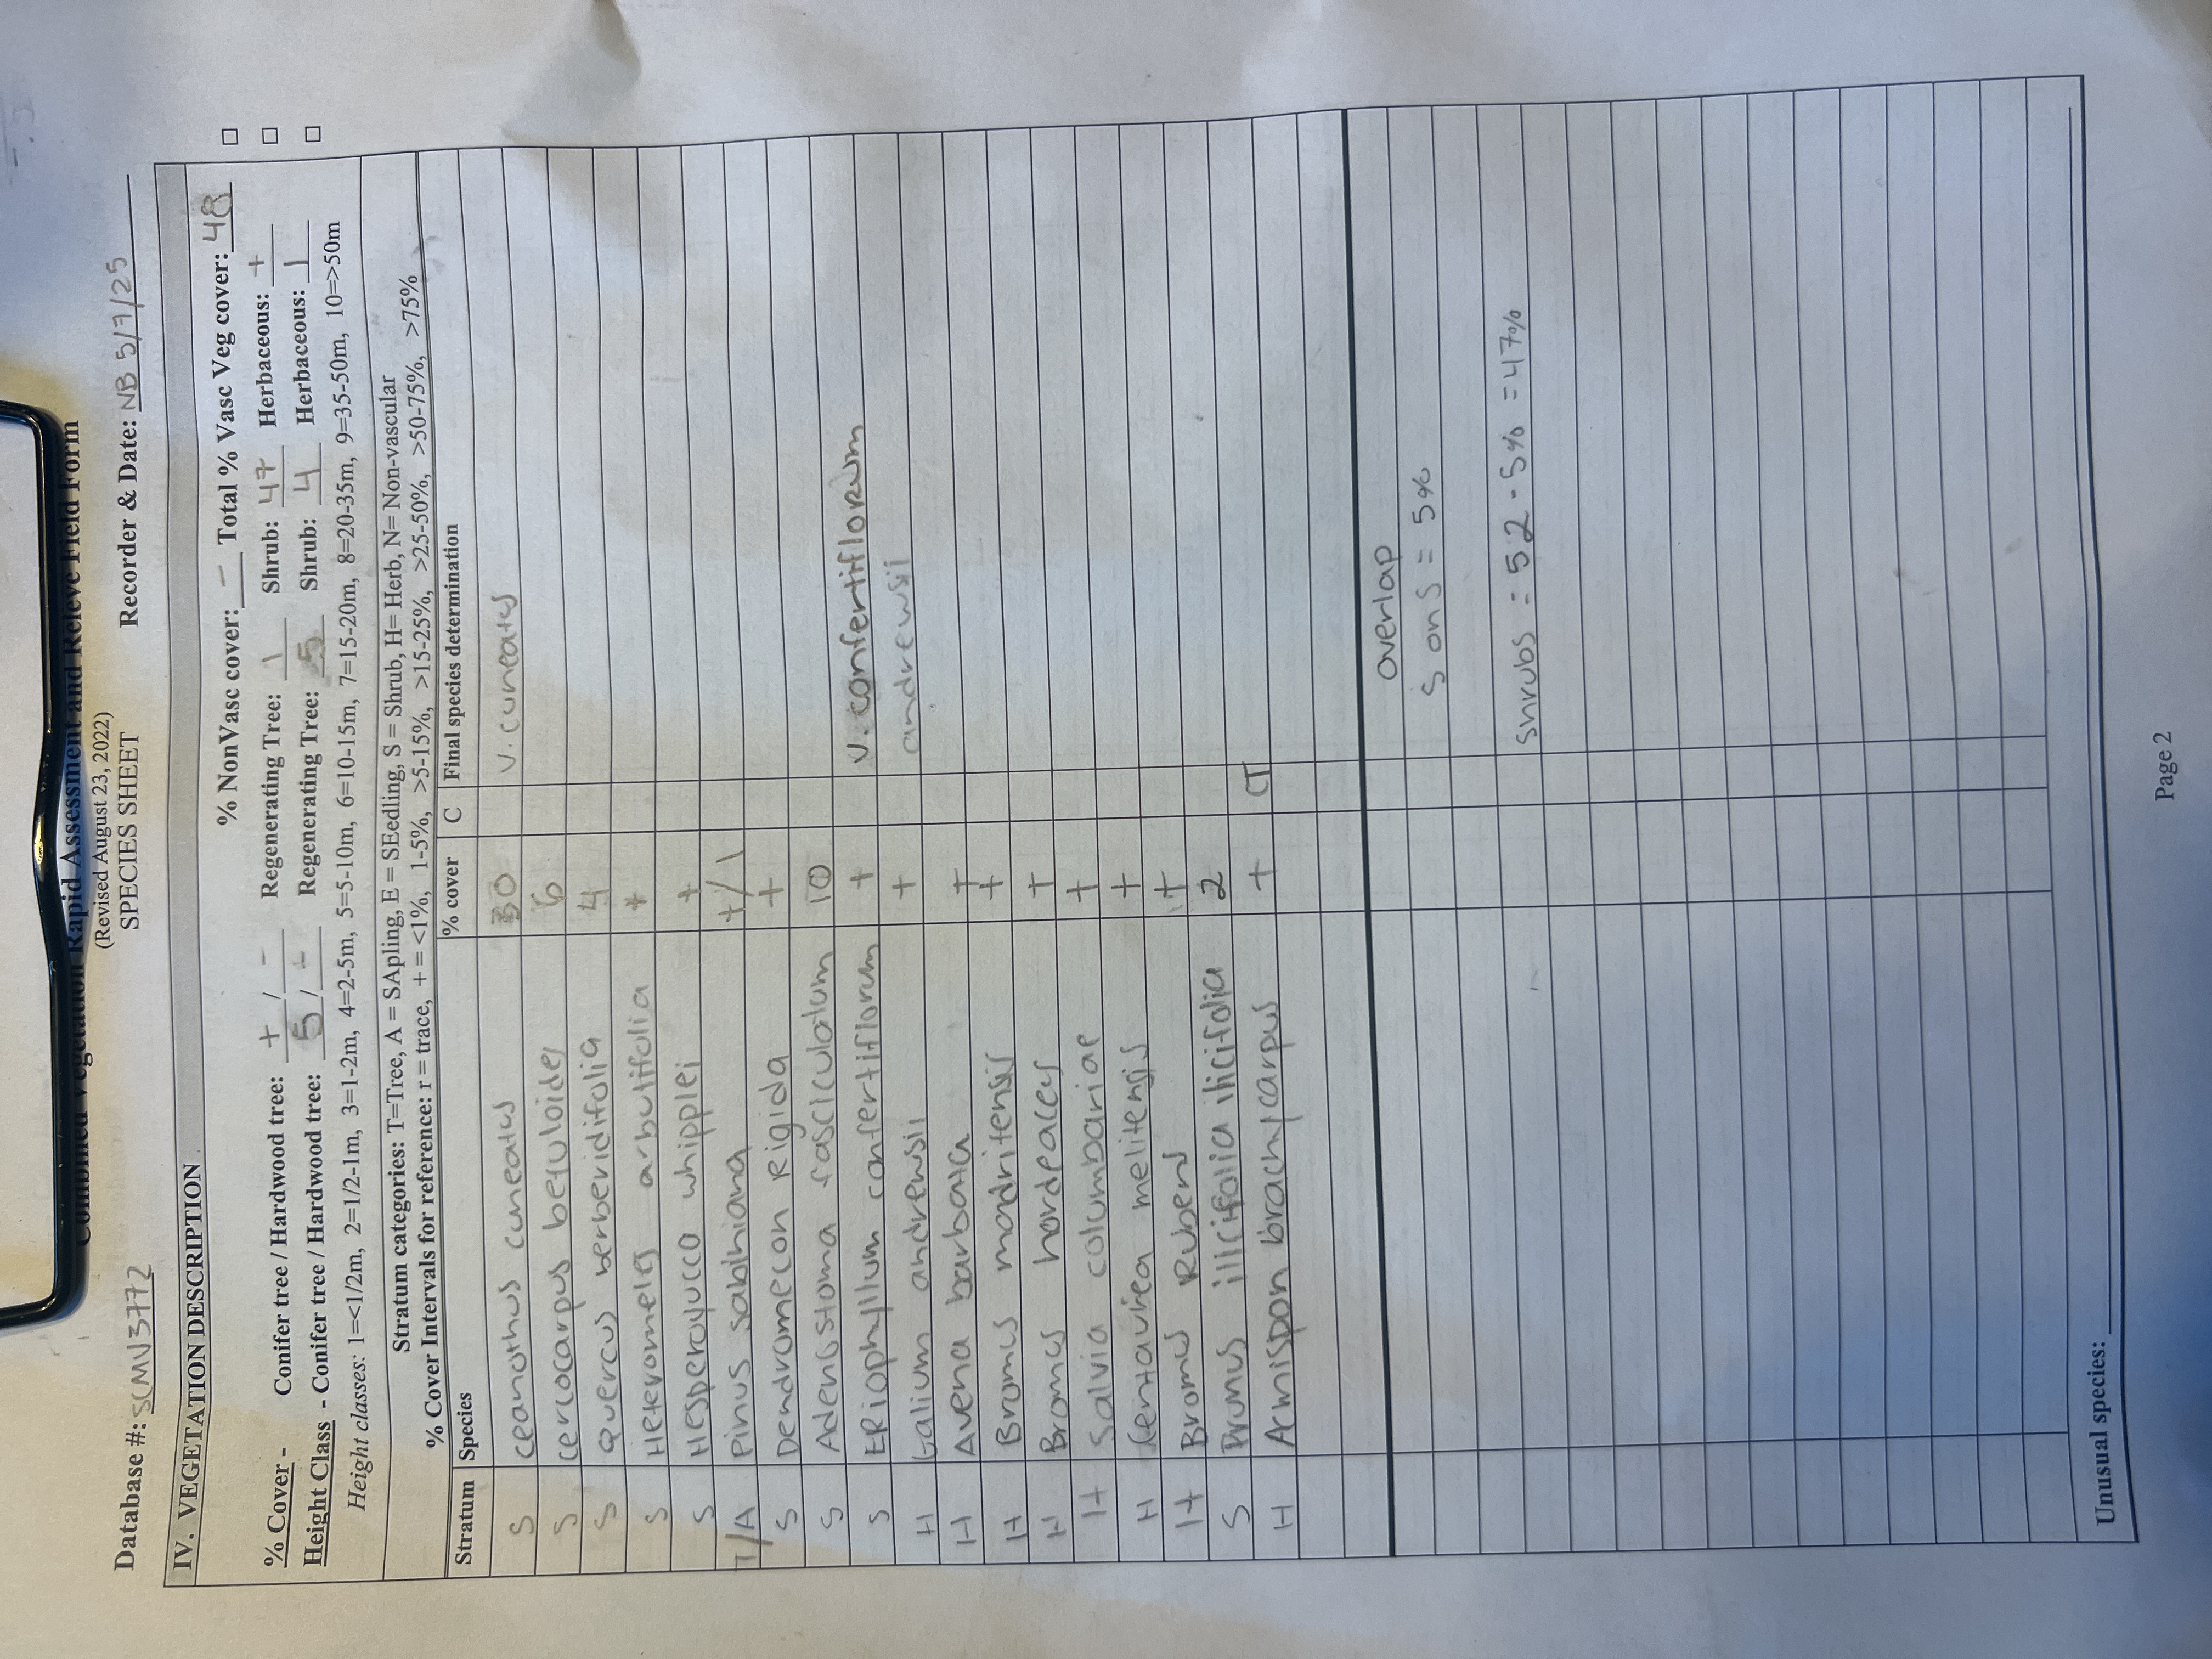 Combined Vegetation Rapid Assessment and Relevé Field Form
(Revised August 23, 2022)
SPECIES SHEET
Database #: SCMN3772 Recorder & Date: NB 5/7/25
IV. VEGETATION DESCRIPTION
% NonVasc cover: – Total % Vasc Veg cover: 48 □
% Cover - Conifer tree / Hardwood tree: + / – Regenerating Tree: 1 Shrub: 47 Herbaceous: + □
Height Class - Conifer tree / Hardwood tree: 5 / – Regenerating Tree: 5 Shrub: 4 Herbaceous: 1 □
Height classes: 1=<1/2m, 2=1/2-1m, 3=1-2m, 4=2-5m, 5=5-10m, 6=10-15m, 7=15-20m, 8=20-35m, 9=35-50m, 10=>50m
Stratum categories: T=Tree, A = SApling, E = SEedling, S = Shrub, H= Herb, N= Non-vascular
% Cover Intervals for reference: r = trace, + = <1%, 1-5%, >5-15%, >15-25%, >25-50%, >50-75%, >75%
Stratum Species % cover C Final species determination
S Ceanothus cuneatus 30 v. cuneatus
S cercocarpus betuloides 6
S Quercus berberidifolia 4
S Heteromeles arbutifolia +
S Hesperoyucca whipplei +
T/A Pinus sabiniana +/1
S Dendromecon Rigida +
S Adenostoma fasciculatum 10
S ERiophyllum confertiflorum + v. confertifloRum
H Galium andrewsii + andrewsii
H Avena barbata +
H Bromus madritensis +
H Bromus hordeaceus +
H Salvia columbariae +
H Centaurea melitensis +
H Bromus Rubens +
S Prunus ilicifolia ilicifolia 2
H Acmispon brachycarpus + CT
Overlap
S on S = 5%
Shrubs = 52 - 5% = 47%
Unusual species:
Page 2